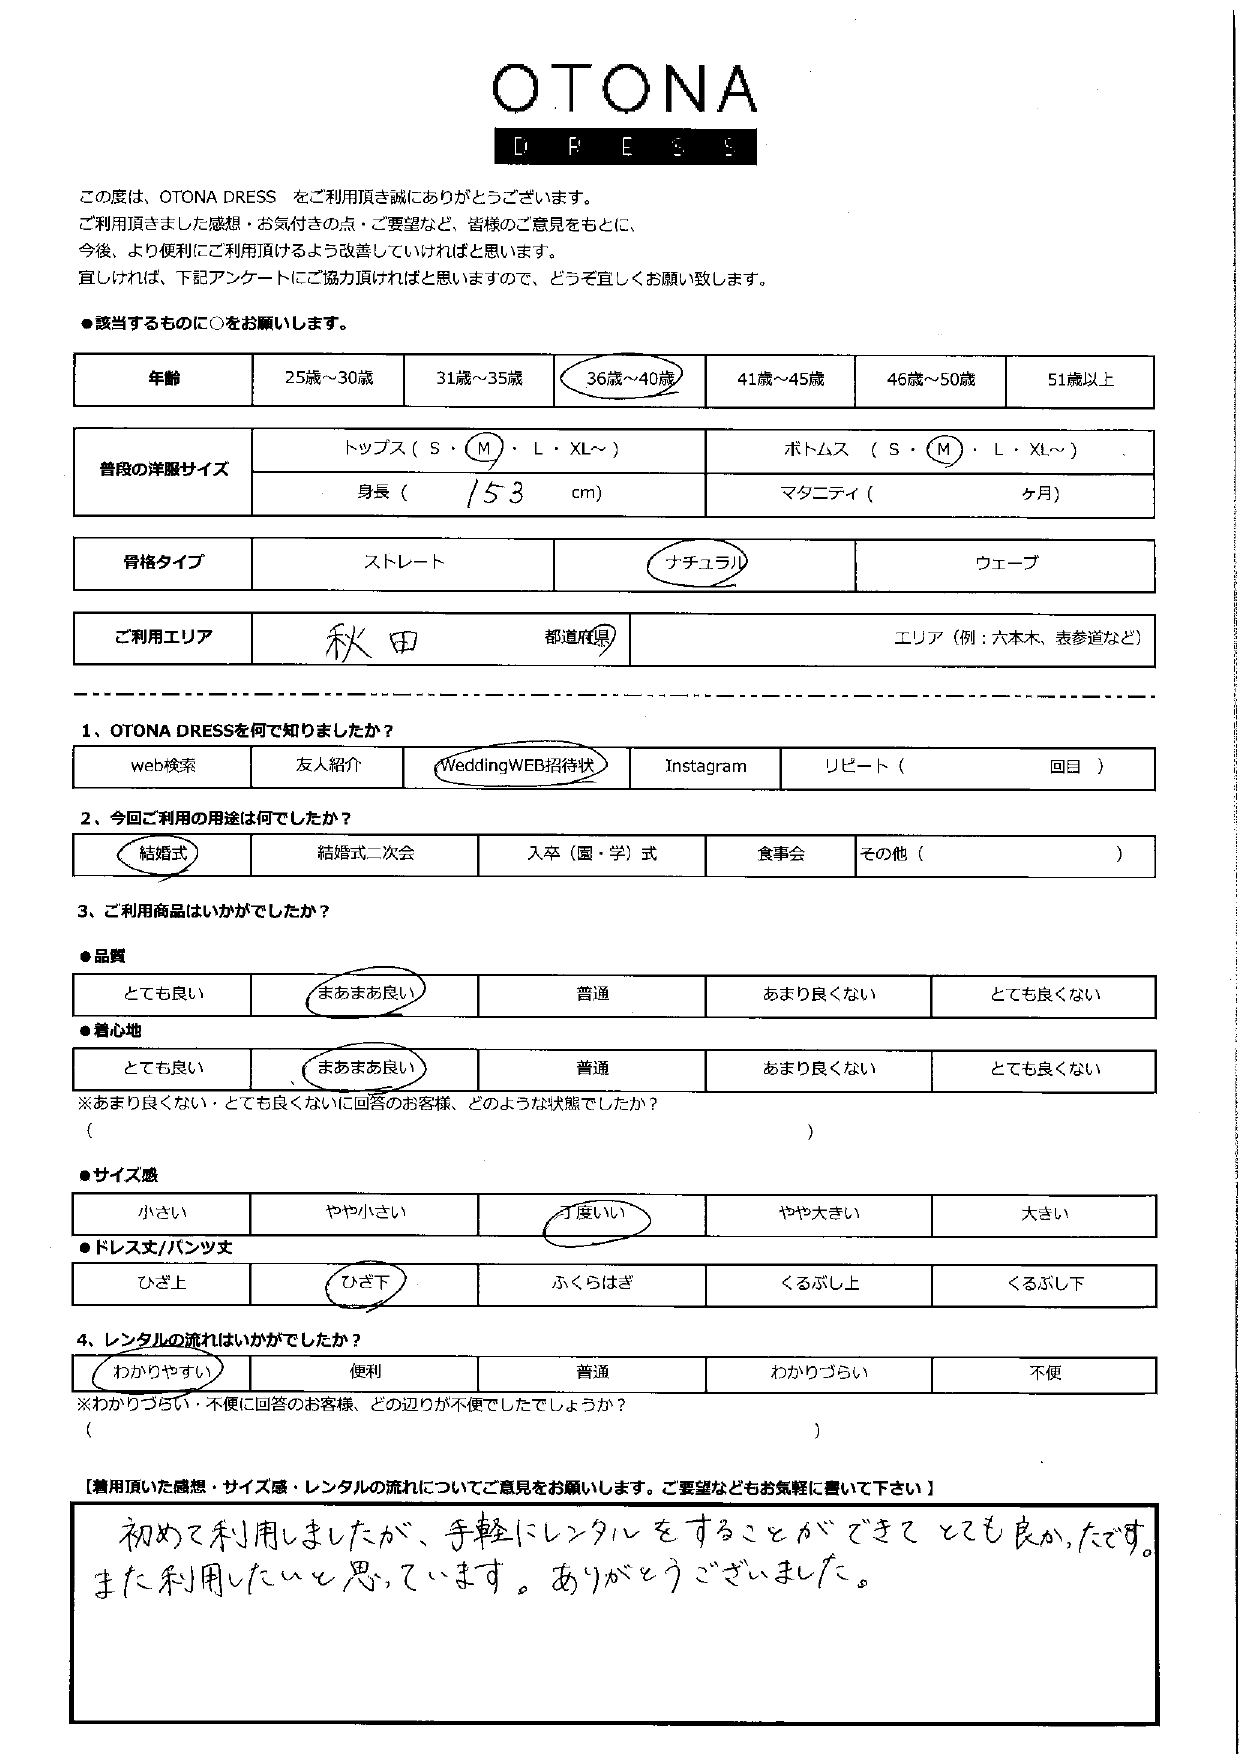 OTONA
DRESS
この度は、OTONA DRESS をご利用頂き誠にありがとうございます。
ご利用頂きました感想・お気付きの点・ご要望など、皆様のご意見をもとに、
今後、より便利にご利用頂けるよう改善していければと思います。
宜しければ、下記アンケートにご協力頂ければと思いますので、どうぞ宜しくお願い致します。
●該当するものに○をお願いします。
年齢 25歳～30歳 31歳～35歳 36歳～40歳 41歳～45歳 46歳～50歳 51歳以上
普段の洋服サイズ
トップス ( S ・ M ・ L ・ XL～ ) ボトムス ( S ・ M ・ L ・ XL～ )
身長 ( 153 cm) マタニティ ( ケ月)
骨格タイプ ストレート ナチュラル ウェーブ
ご利用エリア 秋田 都道府県 エリア（例：六本木、表参道など）
1、OTONA DRESSを何で知りましたか？
web検索 友人紹介 WeddingWEB招待状 Instagram リピート ( 回目 )
2、今回ご利用の用途は何でしたか？
結婚式 結婚式二次会 入卒（園・学）式 食事会 その他 ( )
3、ご利用商品はいかがでしたか？
●品質
とても良い まあまあ良い 普通 あまり良くない とても良くない
●着心地
とても良い まあまあ良い 普通 あまり良くない とても良くない
※あまり良くない・とても良くないに回答のお客様、どのような状態でしたか？
( )
●サイズ感
小さい やや小さい 丁度いい やや大きい 大きい
●ドレス丈/パンツ丈
ひざ上 ひざ下 ふくらはぎ くるぶし上 くるぶし下
4、レンタルの流れはいかがでしたか？
わかりやすい 便利 普通 わかりづらい 不便
※わかりづらい・不便に回答のお客様、どの辺りが不便でしたでしょうか？
( )
【着用頂いた感想・サイズ感・レンタルの流れについてご意見をお願いします。ご要望などもお気軽に書いて下さい 】
初めて利用しましたが、手軽にレンタルをすることができてとても良かったです。
また利用したいと思っています。ありがとうございました。